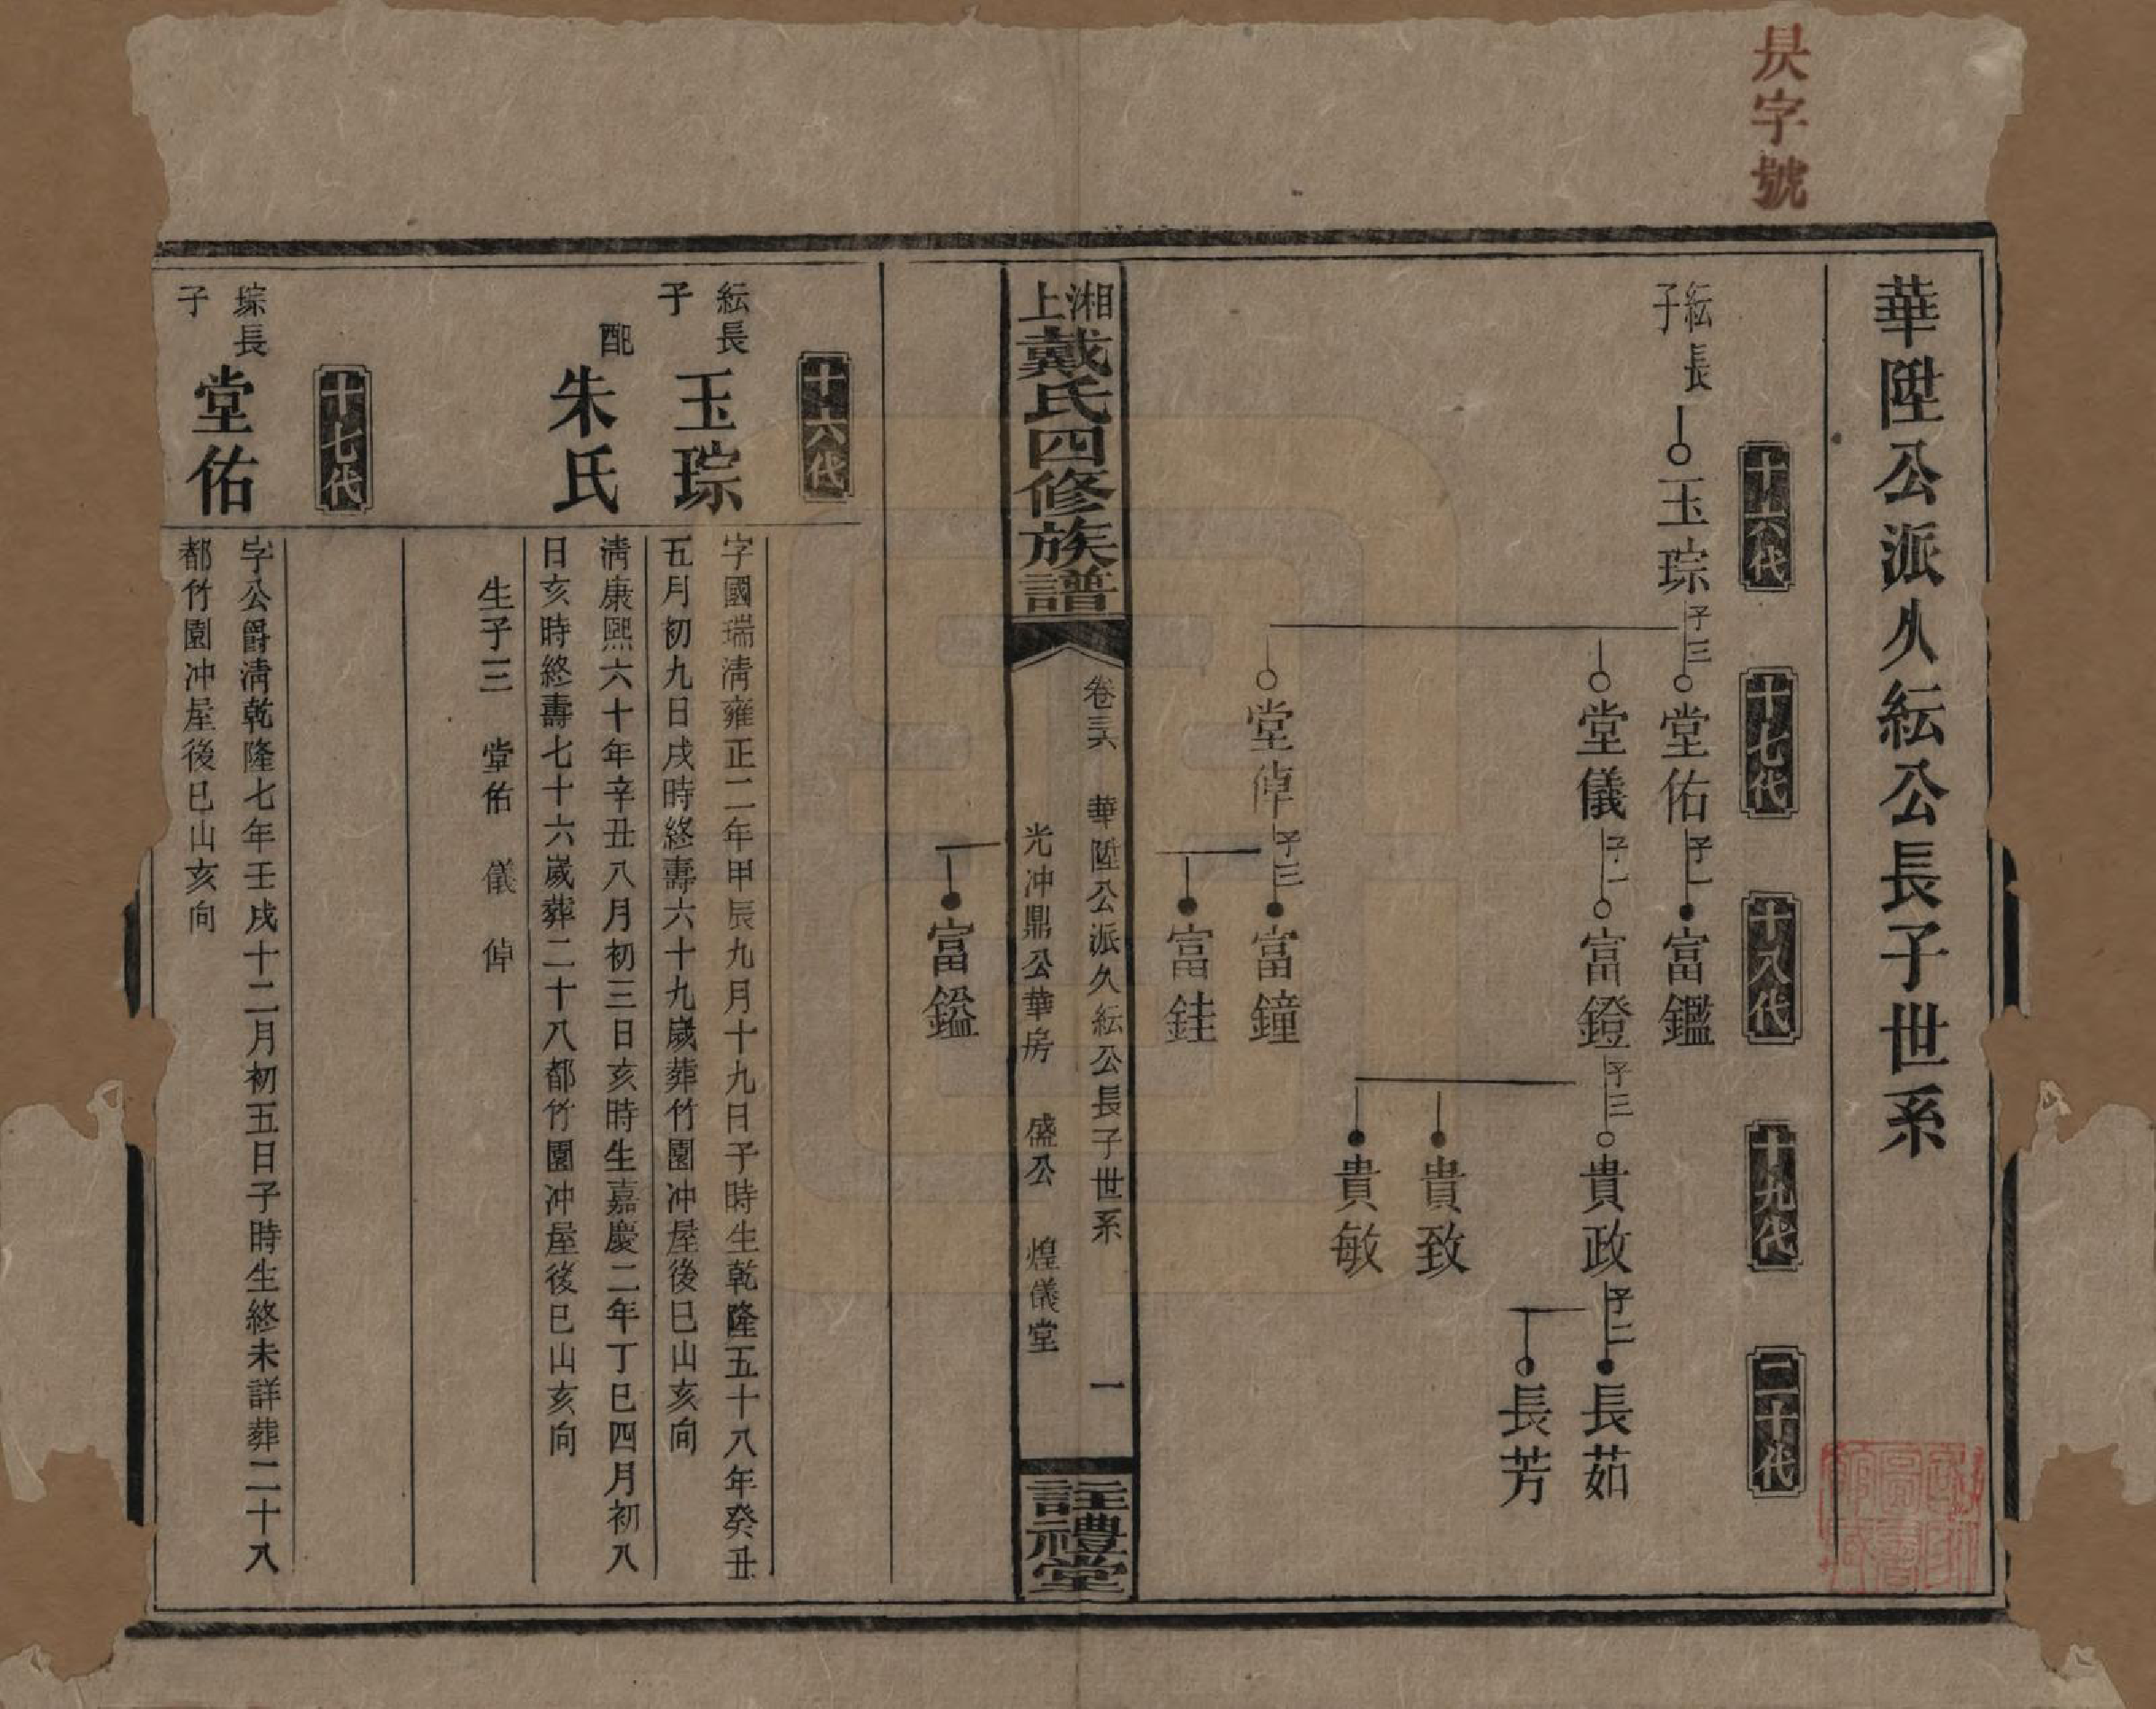 昃字號
華陞公派久紜公長子世系
十六代
十七代
十八代
十九代
二十代
紜長子
玉琮
子三
堂佑
子一
富鑑
堂儀
子一
富鐙
子三
貴政
子二
長茹
長芳
貴致
貴敏
堂倬
子三
富鐘
富銈
富鎰
湘上戴氏四修族譜
華陞公派久紜公長子世系
一
光冲鼎公華房 盛公 煌儀堂
註禮堂
十六代
紜長子
玉琮
字國瑞淸雍正二年甲辰九月十九日子時生乾隆五十八年癸丑
五月初九日戌時終壽六十九歲葬竹園冲屋後巳山亥向
配
朱氏
淸康熙六十年辛丑八月初三日亥時生嘉慶二年丁巳四月初八
日亥時終壽七十六歲葬二十八都竹園冲屋後巳山亥向
生子三 堂佑 儀 倬
十七代
琮長子
堂佑
字公爵淸乾隆七年壬戌十二月初五日子時生終未詳葬二十八
都竹園冲屋後巳山亥向